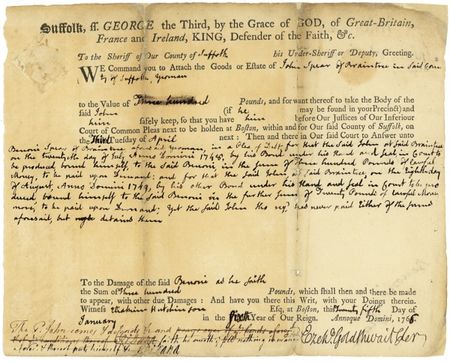 Suffolk, ss. GEORGE the Third, by the Grace of GOD, of Great-Britain,
France and Ireland, KING, Defender of the Faith, &c.
To the Sheriff of Our County of Suffolk his Under-Sheriff or Deputy, Greeting.
WE Command you to Attach the Goods or Estate of John Spear of Braintree in said Coun
ty of Suffolk, yeoman
to the Value of Three hundred Pounds, and for want thereof to take the Body of the
said John (if he may be found in your Precinct) and
him safely keep, so that you have him before Our Justices of Our Inferiour
Court of Common Pleas next to be holden at Boston, within and for Our said County of Suffolk, on
the Third Tuesday of April next: Then and there in Our said Court to Answer unto
Benoni Spear of Braintree yeoman, in a Plea of Debt, for that the said John at said Braintree
on the twentieth day of July, Anno Domini 1748, by his Bond under his Hand and seal in Court to
be produced bound himself to the said Benoni in the sum of Three Hundred Pounds of Lawful
Money, to be paid upon Demand; and for that the said John, at said Braintree, on the Eighth day
of August, Anno Domini 1749, by his other Bond under his Hand and seal in Court to be pro
duced bound himself to the said Benoni in the further sum of Twenty Pounds of Lawful Mon
ey, to be paid upon Demand; yet the said John tho' reqd. has never paid Either of the sums
aforesaid, but detains them
To the Damage of the said Benoni as he saith
the Sum of Three hundred Pounds, which shall then and there be made
to appear, with other due Damages: And have you there this Writ, with your Doings therein.
Witness Thomas Hutchinson Esq; at Boston, this Twenty fifth Day of
January in the Sixth Year of Our Reign. Annoque Domini, 1766
The sd. John comes & defends &c and
Ezekl. Goldthwait Cler